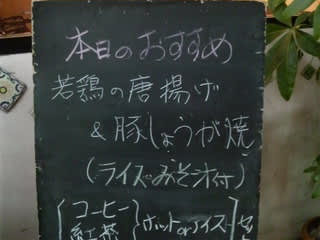 本日のおすすめ
若鶏の唐揚げ
& 豚しょうが焼
(ライス・みそ汁付)
{コーヒー
紅茶}ホットorアイス]セ